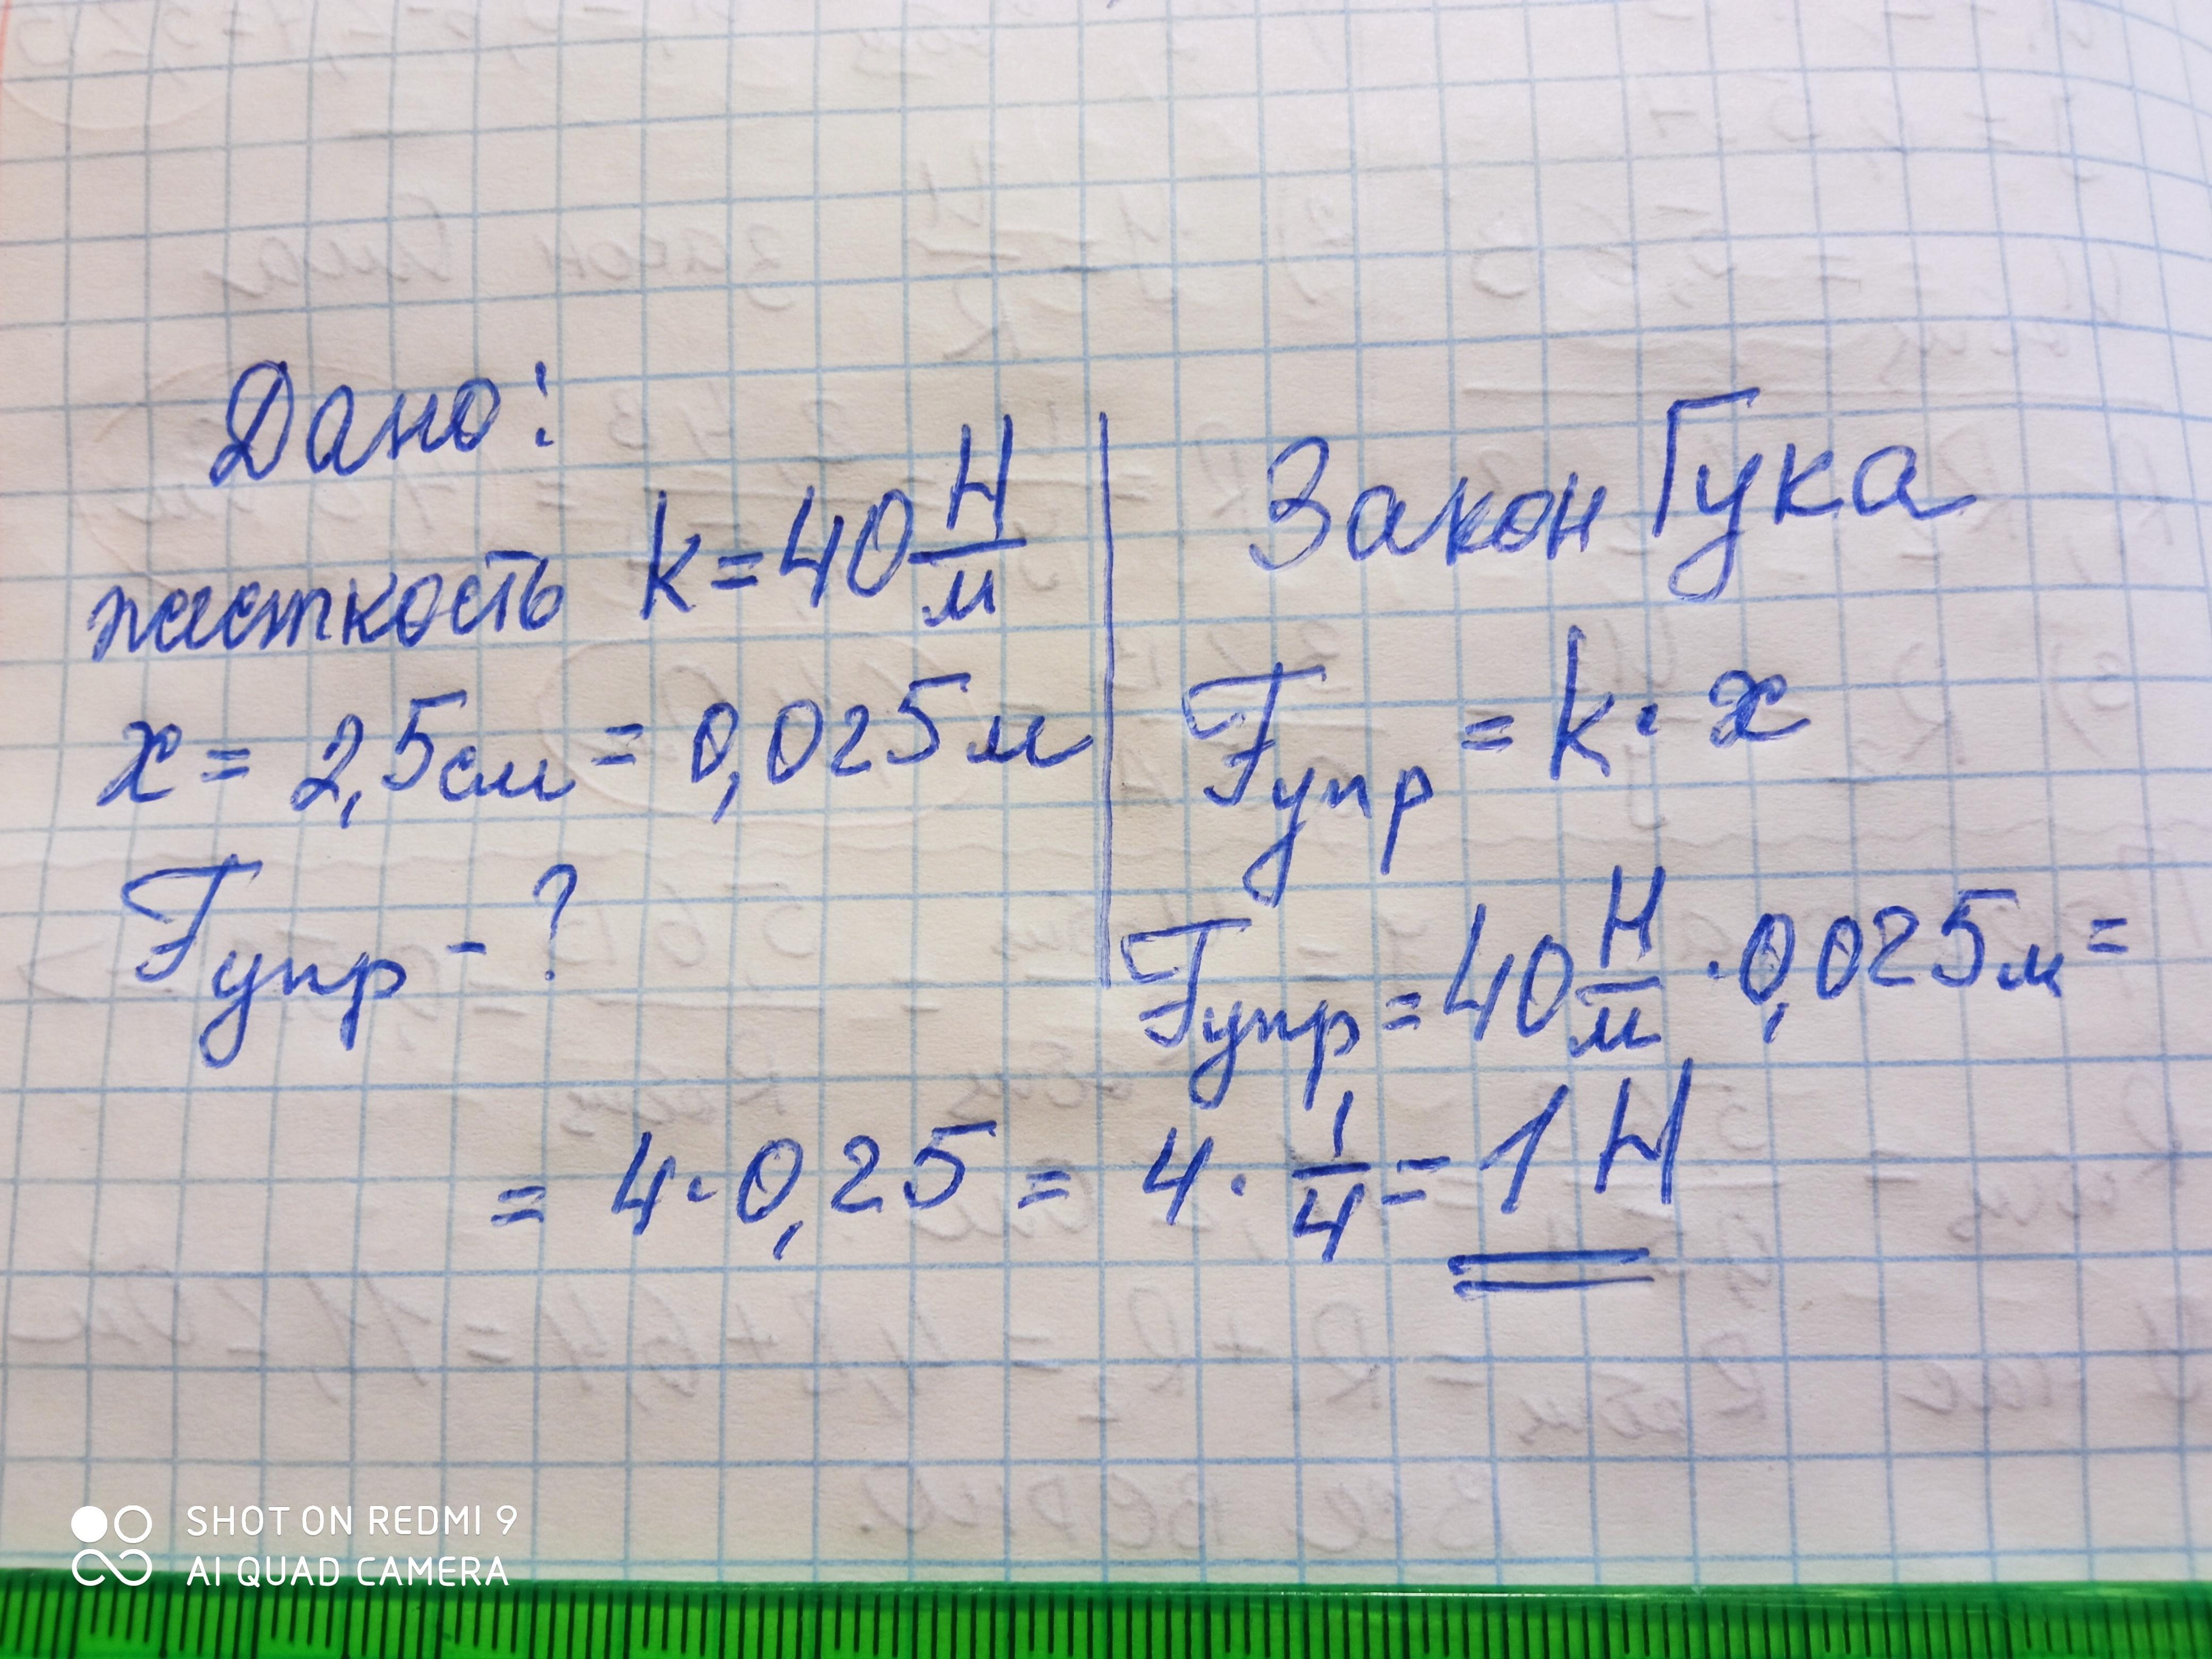 Дано:
жесткость k = 40 Н/м
x = 2,5 см = 0,025 м
Fупр - ?
Закон Гука
Fупр = k · x
Fупр = 40 Н/м · 0,025 м =
= 4 · 0,25 = 4 · 1/4 = 1 Н
SHOT ON REDMI 9
AI QUAD CAMERA